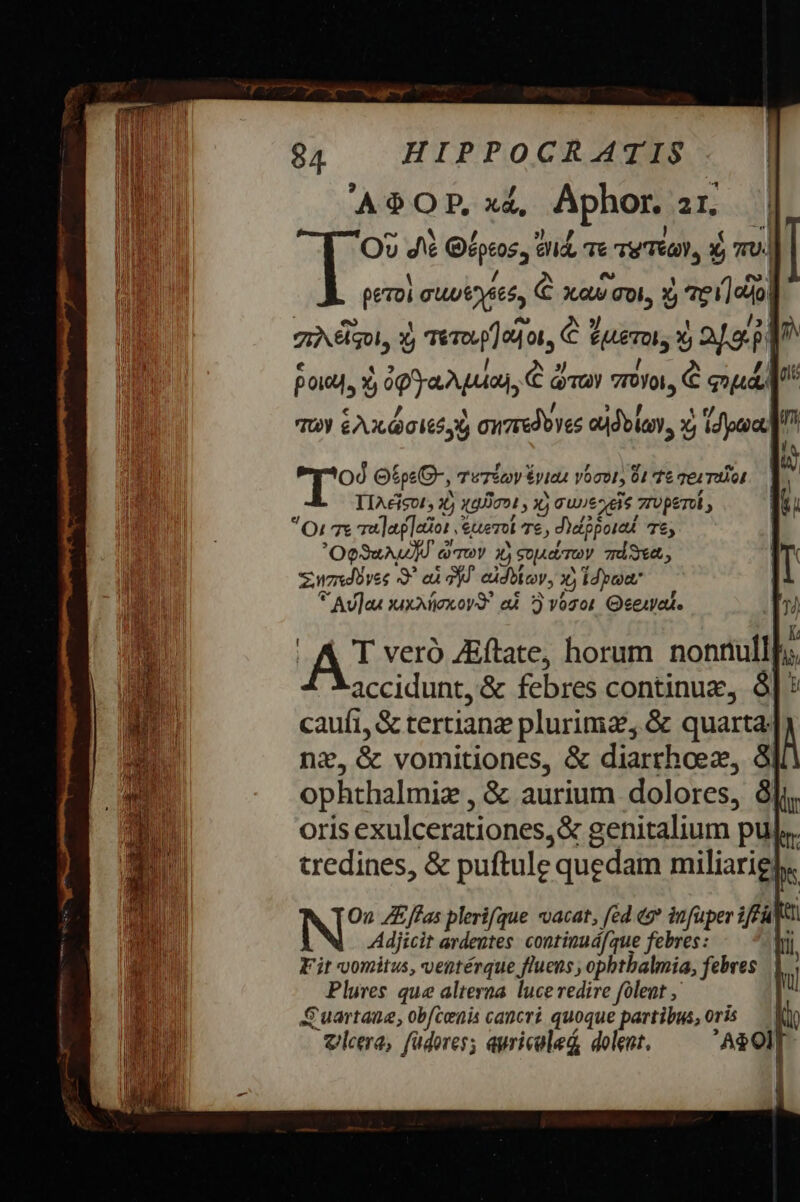 84 HIPPOCRATIS
ἈΦΟΡ. κά, Aphor. 21.
Τοῦ δὲ Θέρεος, ἔνιά τε τουτέων, καὶ πυ-
ρετοὶ συνεχέες, καὶ καῦσοι, καὶ τριταῖοι
πλεῖστοι, καὶ τεταρταῖοι, καὶ ἔμετοι, καὶ διάῤ-
ῥοιαι, καὶ ὀφθαλμίαι, καὶ ὤτων πόνοι, καὶ στομά-
των ἑλκώσιες, καὶ σηπεδόνες αἰδοίων, καὶ ἵδρωα
Τοῦ Θέρεος, τουτέων ἔνιαι νόσοι, οἵ τε τριταῖοι
Πλεῖστοι, καὶ καῦσοι, καὶ συνεχεῖς πυρετοί,
Οἵ τε τεταρταῖοι, ἔμετοί τε, διάῤῥοιαί τε,
Ὀφθαλμῶν ὤτων καὶ στομάτων πάθεα,
Σηπεδόνες θ' αἱ τῶν αἰδοίων, καὶ ἵδρωα·
Αὗται κικλήσκονθ' αἱ νόσοι Θεριναί.
AT verò Æſtate, horum nonnull
accidunt, & febres continuæ, &
cauſi, & tertianæ plurimæ, & quarta-
næ, & vomitiones, & diarrhœæ, &
ophthalmiæ, & aurium dolores, &
oris exulcerationes, & genitalium pu
tredines, & puſtulę quędam miliarię
NOn Æſtas pleriſque vacat, ſed & inſuper iſta
Adjicit ardentes continuáſque febres:
Fit vomitus, ventérque fluens, ophthalmia, febres
Plures quæ alterna luce redire ſolent,
Quartanæ, obſcœnis cancri quoque partibus, oris
Ulcera, ſudores; auriculæq́, dolent. ἈΦΟ